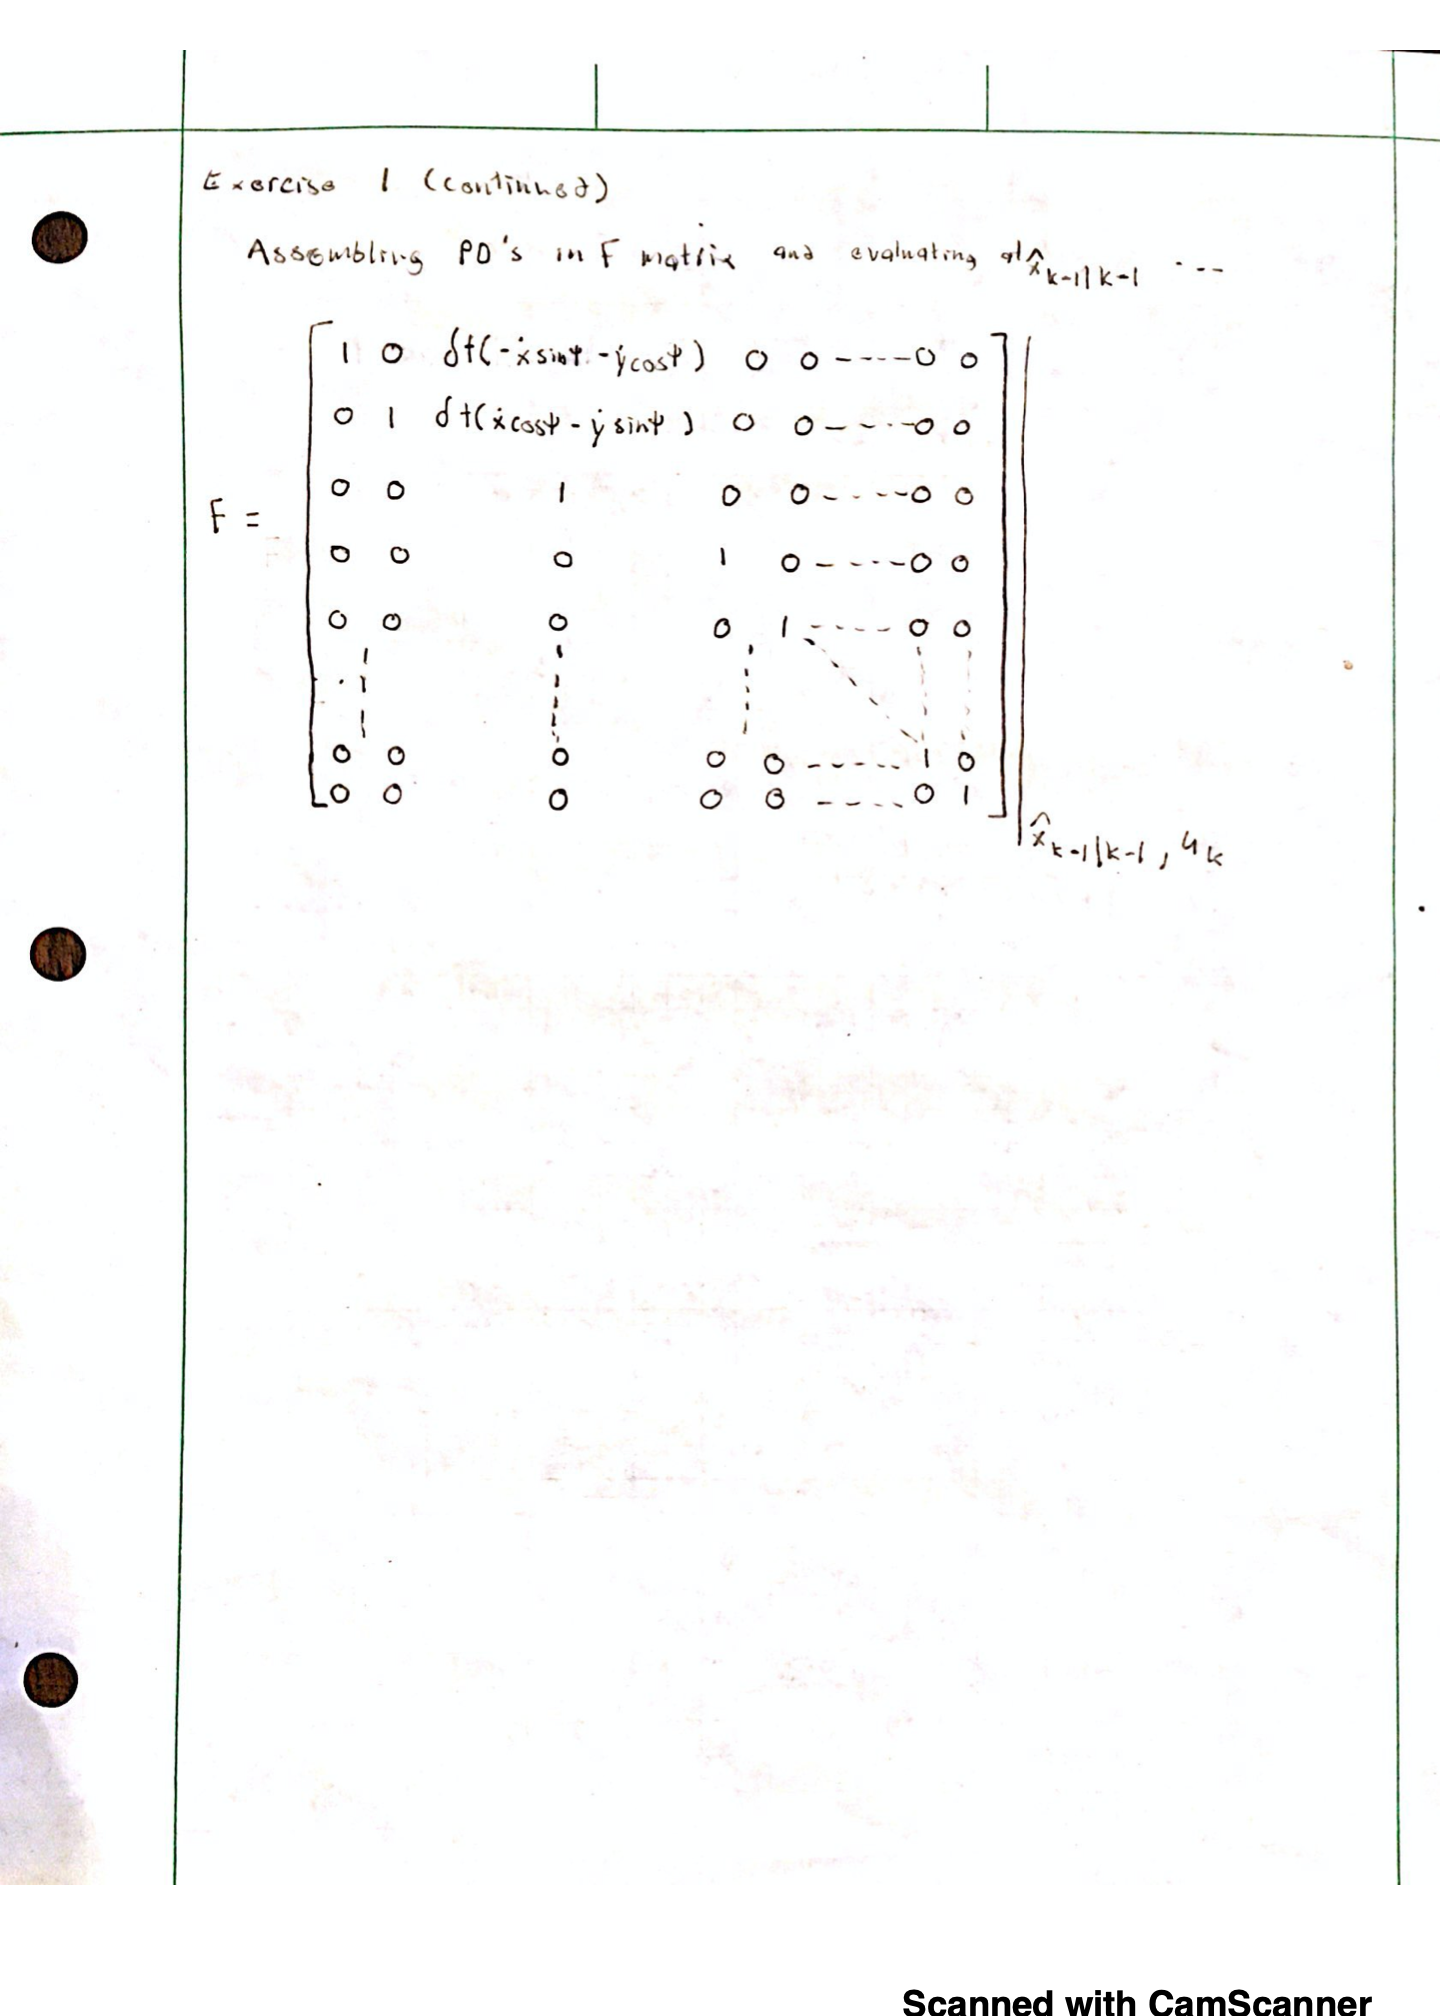 Exercise 1 (continued)
Assembling PD's in F matrix and evaluating at x̂ₖ₋₁|ₖ₋₁ ...
1 0 δt(-ẋ sinψ - ẏ cosψ) 0 0 ---- 0 0
0 1 δt(ẋ cosψ - ẏ sinψ) 0 0 ---- 0 0
0 0 1 0 0 ---- 0 0
F =
0 0 0 1 0 ---- 0 0
0 0 0 0 1 ---- 0 0
0 0 0 0 0 ---- 1 0
0 0 0 0 0 ---- 0 1
x̂ₖ₋₁|ₖ₋₁, uₖ
Scanned with CamScanner